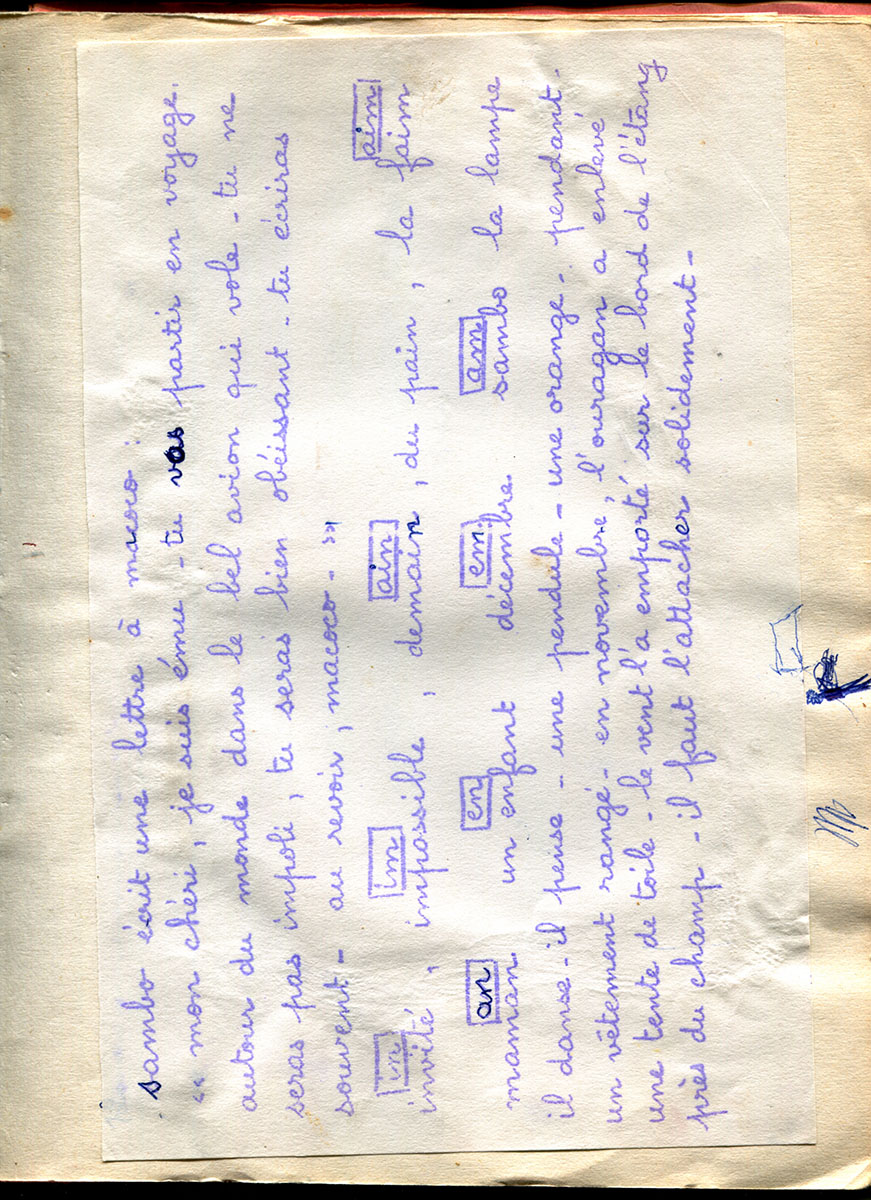 sambo écrit une lettre à macoco :
« mon chéri, je suis ému - tu vas partir en voyage.
autour du monde dans le bel avion qui vole - tu ne
seras pas impoli, tu seras bien obéissant - tu écriras
souvent - au revoir, macoco - »
in im ain aim
invité, impossible, demain, du pain, la faim
an en em am
maman un enfant décembre sambo la lampe
il danse - il pense - une pendule - une orange - pendant -
un vêtement rangé - en novembre, l'ouragan a enlevé
une tente de toile - le vent l'a emporté sur le bord de l'étang
près du champ - il faut l'attacher solidement -